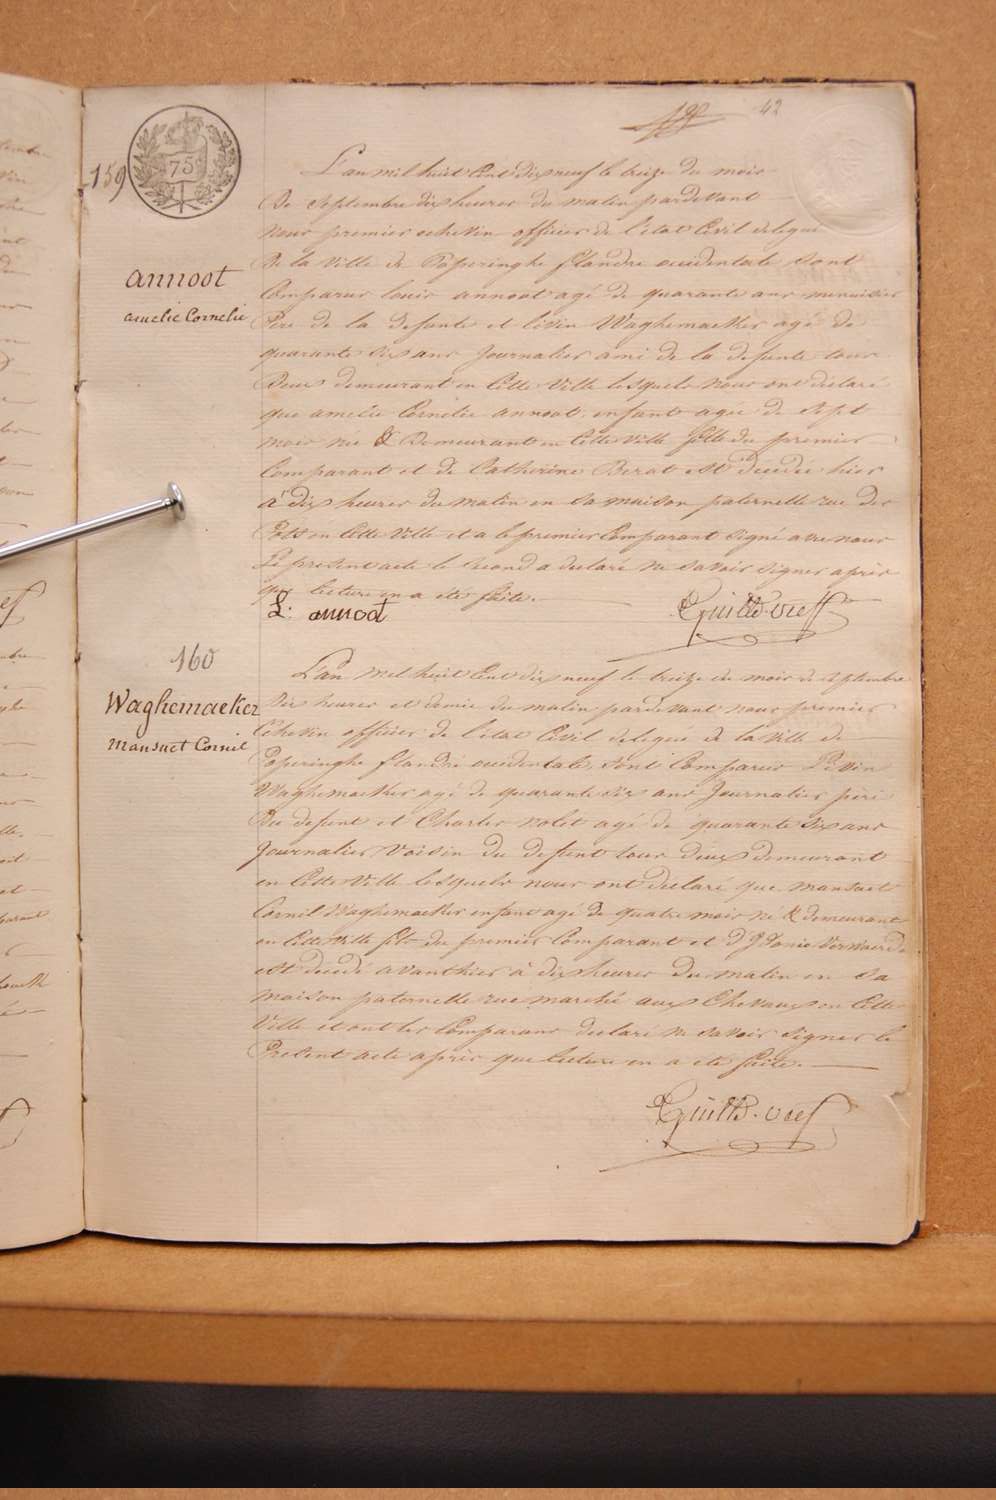 42
75
159
L'an mil huit Cent dix neuf le treize du mois
De Septembre dix heures du matin pardevant
nous premier echevin officier de l'etat Civil delegué
De la Ville de Poperinghe flandre occidentale sont
Comparus louis annoot agé de quarante ans menuisier
annoot
amelie Cornelie
Pere de la defunte et livin Waghemaeker agé de
quarante six ans Journalier ami de la defunte tous
Deux demeurant en Cette Ville lesquels nous ont déclaré
que amelie Cornelie annoot, enfant agée de Sept
mois née & Demeurant en Cette Ville fille du premier
Comparant et de Catherine Berat est décédée hier
à dix heures du matin en sa maison paternelle rue des
Pots en Cette Ville et a le premier Comparant Signé avec nous
Le present acte le second a declaré ne savoir signer après
que lecture en a été faite.
L. annoot
160
L'an mil huit Cent dix neuf le treize du mois de Septembre
Waghemaeker
mansuet Cornil
Dix heures et demie du matin pardevant nous premier
Echevin officier de l'etat Civil delegué de la Ville de
Poperinghe flandre occidentale, sont Comparus Livin
Waghemaeker agé de quarante six ans Journalier pere
Du defunt et Charles nolet agé de quarante six ans
Journalier Voisin du defunt tous deux demeurant
en Cette Ville lesquels nous ont déclaré que mansuet
Cornil Waghemaeker enfant agé de quatre mois né & demeurant
en Cette Ville fils du premier Comparant et
est décédé avanthier à dix heures du matin en sa
maison paternelle rue marché aux Chevaux en Cette
Ville et ont les Comparans declaré ne savoir signer le
Present acte après que lecture en a été faite.